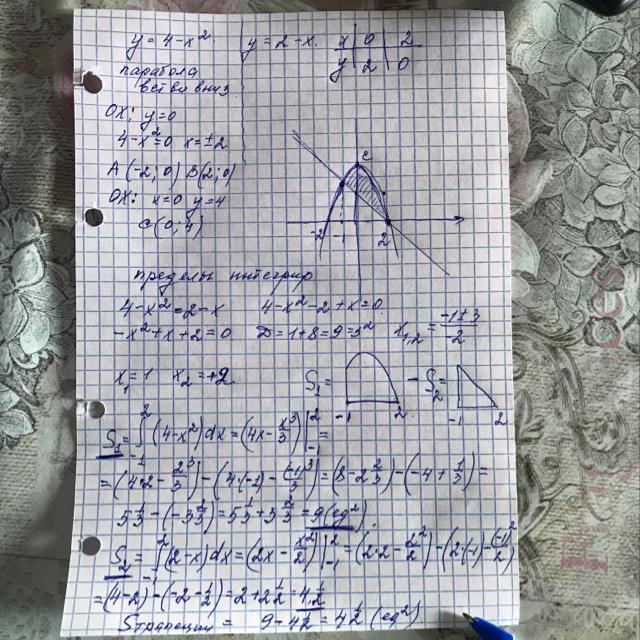 y = 4 - x². y = 2 - x. x | 0 | 2
y | 2 | 0
парабола
ветви вниз.
OX: y = 0
4 - x² = 0 x = ±2
A(-2; 0) B(2; 0)
OX: x = 0 y = 4
C(0; 4)
C
-2 -1 2
пределы интегрир
4 - x² = 2 - x 4 - x² - 2 + x = 0.
-x² + x + 2 = 0 D = 1 + 8 = 9 = 3² x₁,₂ = (-1 ± 3)/-2
x₁ = 1 x₂ = +2 S₁ = -1 2 - S₂ = -1 2
S₁ = ∫₋₁² (4 - x²)dx = (4x - x³/3)|₋₁² =
= (4·2 - 2³/3) - (4·(-1) - (-1)³/3) = (8 - 2 2/3) - (-4 + 1/3) =
5 1/3 - (-3 2/3) = 5 1/3 + 3 2/3 = 9 (ед²).
S₂ = ∫₋₁² (2 - x)dx = (2x - x²/2)|₋₁² = (2·2 - 2²/2) - (2·(-1) - (-1)²/2)
= (4 - 2) - (-2 - 1/2) = 2 + 2 1/2 = 4 1/2
Sтрапеции = 9 - 4 1/2 = 4 1/2 (ед²)